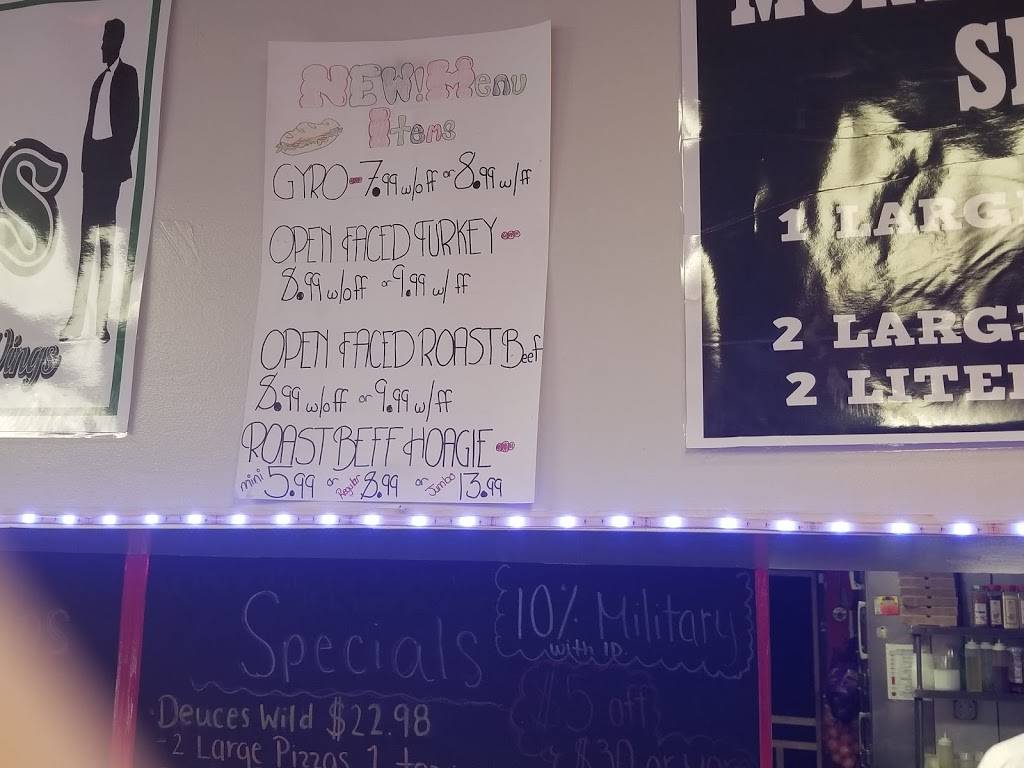 NEW! Menu
Items
GYRO - 7.99 w/off or 8.99 w/ff
OPEN FACED TURKEY -
8.99 w/off or 9.99 w/ff
OPEN FACED ROAST Beef
8.99 w/off or 9.99 w/ff
ROAST BEFF HOAGIE -
mini 5.99 or Regular 8.99 or Jumbo 13.99
S
Wings
1 LARG
2 LARG
2 LITE
Specials
10% Military
with ID
$5 off
$30 or
Deuces Wild $22.98
-2 Large Pizzas 1